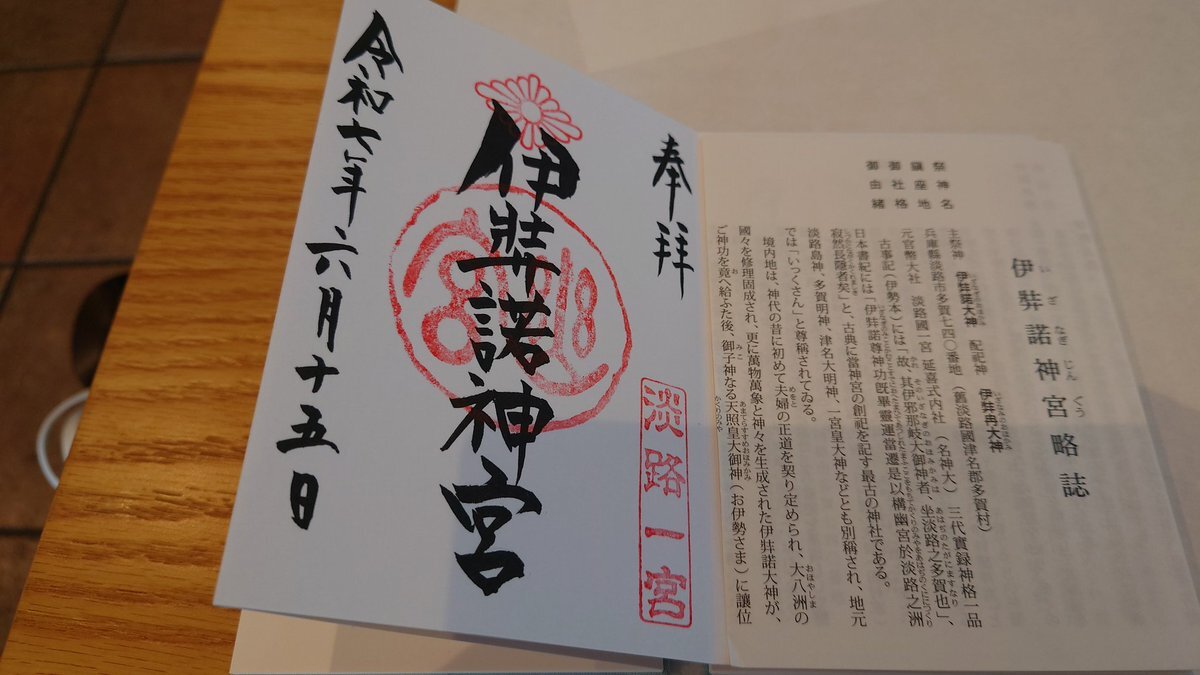 伊弉諾神宮略誌
いざなぎじんぐう
祭神名
鎮座地
御社格
御由緒
主祭神 伊弉諾大神 配祀神 伊弉冉大神
兵庫縣淡路市多賀七四〇番地（舊淡路國津名郡多賀村）
元官幣大社 淡路國一宮 延喜式内社（名神大）三代實録神格一品
古事記（伊勢本）には「故、其伊邪那岐大御神者、坐淡路之多賀也」、
日本書紀には「伊弉諾尊神功既畢靈運當遷是以構幽宮於淡路之洲
寂然長隱者矣」と、古典に當神宮の創祀を記す最古の神社である。
淡路島神、多賀明神、津名大明神、一宮皇大神などとも別稱され、地元
では「いっくさん」と尊稱されてゐる。
境内地は、神代の昔に初めて夫婦の正道を契り定められ、大八洲の
國々を修理固成され、更に萬物萬象と神々を生成された伊弉諾大神が、
ご神功を竟へ給ふた後、御子神なる天照皇大御神（お伊勢さま）に讓位
奉拜
淡路一宮
伊弉諾神宮
令和六年六月十五日